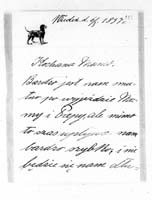 Wiedeń d. 9/7 1897.
Kochana Mamo.
Bardzo jest nam smu-
tno po wyjeździe Ma-
my i ale mimo
to czas upływa nam
bardzo szybko, i nie
będzie się nam dłu-